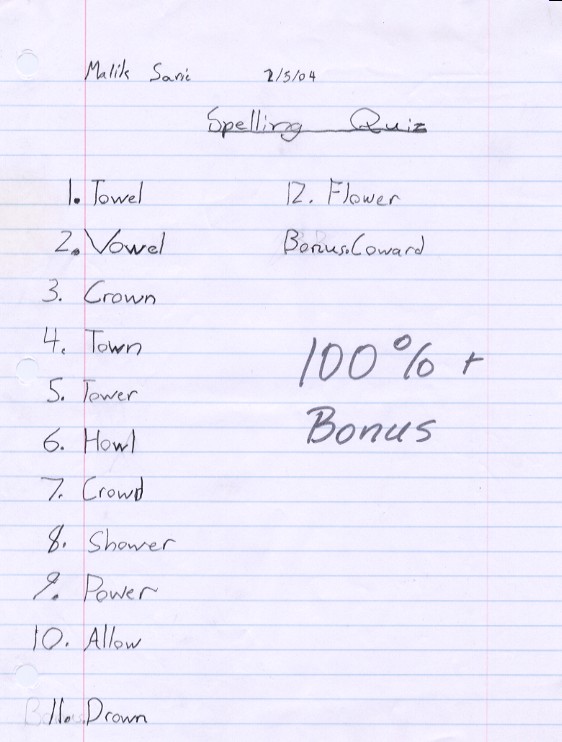 Malik Saric 2/5/04
Spelling Quiz
1. Towel
2. Vowel
3. Crown
4. Town
5. Tower
6. Howl
7. Crowd
8. Shower
9. Power
10. Allow
11. Drown
12. Flower
Bonus. Coward
100% +
Bonus